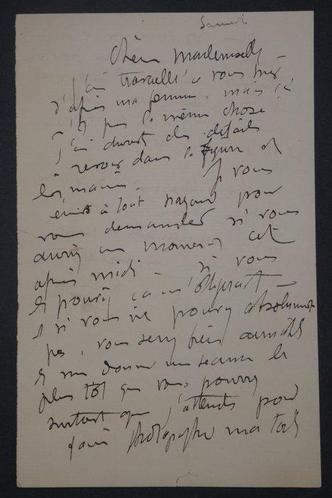 Samedi
Chère mademoiselle –
J'ai travaillé à vous hier
d'après ma femme. mais ça
n'est pas la même chose !
J'ai durant des détails
à revoir dans la figure et
les mains. Je vous
écris à tout hasard pour
vous demander si vous
auriez un moment cet
après midi – si vous
le pouviez ça m'obligerait –
et si vous ne pouvez absolument
pas, vous serez bien aimable
de me donner une séance le
plus tôt que vous pourrez
surtout que j'attends pour
faire photographier ma toile